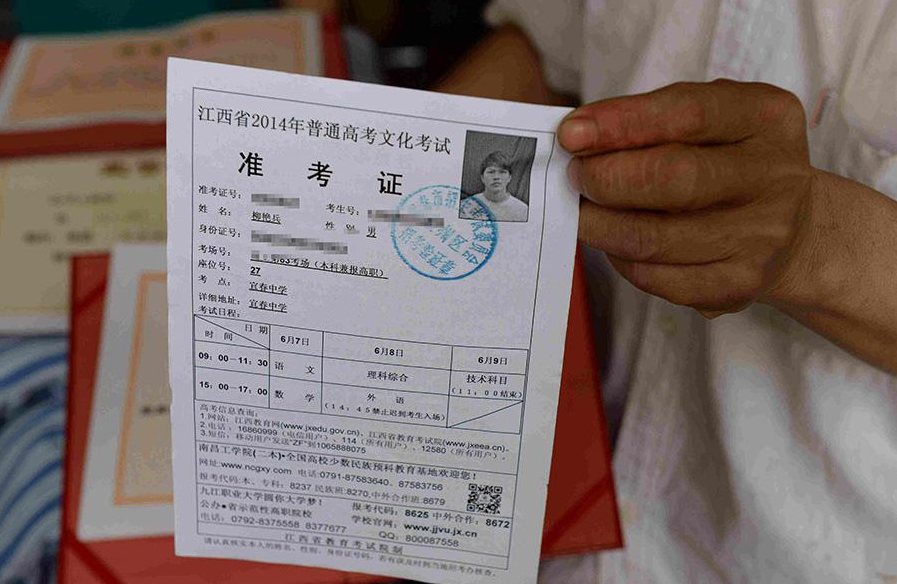 江西省2014年普通高考文化考试
准 考 证
准考证号:
考生号:
姓 名: 柳艳兵
性 别: 男
身份证号:
考场号: 第63考场(本科兼报高职)
座位号: 27
考 点: 宜春中学
详细地址: 宜春中学
考试日程:
日 期
时 间
6月7日 6月8日 6月9日
09:00-11:30 语 文 理科综合 技术科目
(11:00结束)
15:00-17:00 数 学 外 语
(14:45禁止迟到考生入场)
高考信息查询:
1.网站:江西教育网(www.jxedu.gov.cn)、江西省教育考试院(www.jxeea.cn)。
2.电话:16860999(电信用户)、114(所有用户)、12580(所有用户)。
3.短信:移动用户发送"ZF"到1065888075
南昌工学院(二本)•全国高校少数民族预科教育基地欢迎您!
网址:www.ncgxy.com 电话:0791-87583640、87583756
报考代码:本、专科:8237 民族班:8270,中外合作班:8679
九江职业大学圆你大学梦!
报考代码:8625 中外合作:8672
公办●省示范性高职院校
学校官网:www.jjvu.jx.cn
电话:0792-8375558 8377677
QQ:800087558
江西省教育考试院制